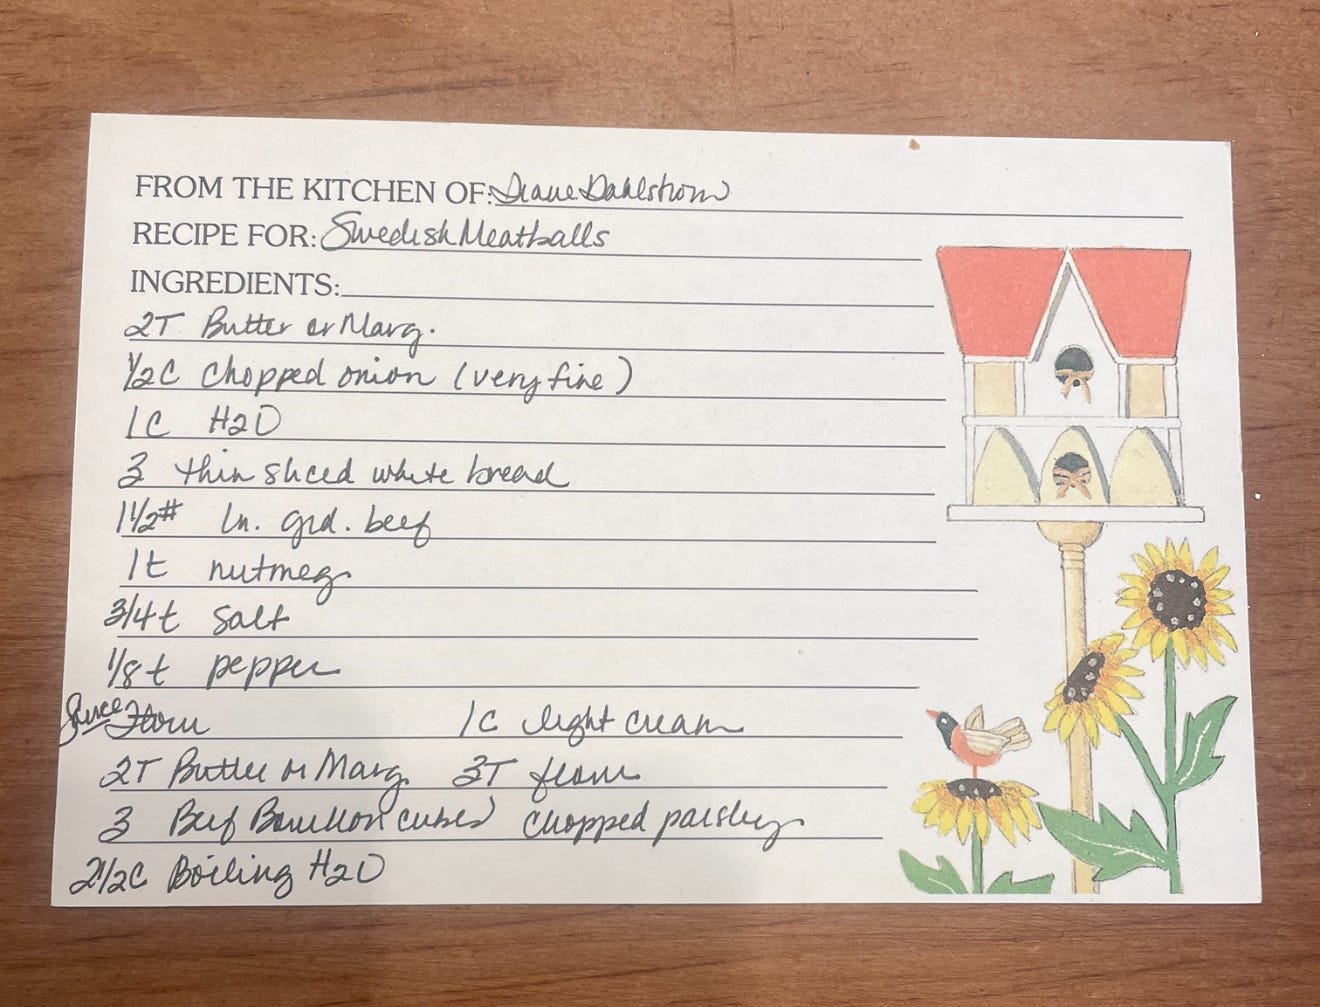 FROM THE KITCHEN OF: Diane Dahlstrom
RECIPE FOR: Swedish Meatballs
INGREDIENTS:
2T Butter or Marg.
1/2C Chopped onion (very fine)
1C H2O
3 thin sliced white bread
1 1/2# Ln. grd. beef
1t nutmeg
3/4t Salt
1/8t pepper
Sauce 1C light cream
2T Butter or Marg. 3T flour
3 Beef Bouillon cubes chopped parsley
2 1/2C Boiling H2O